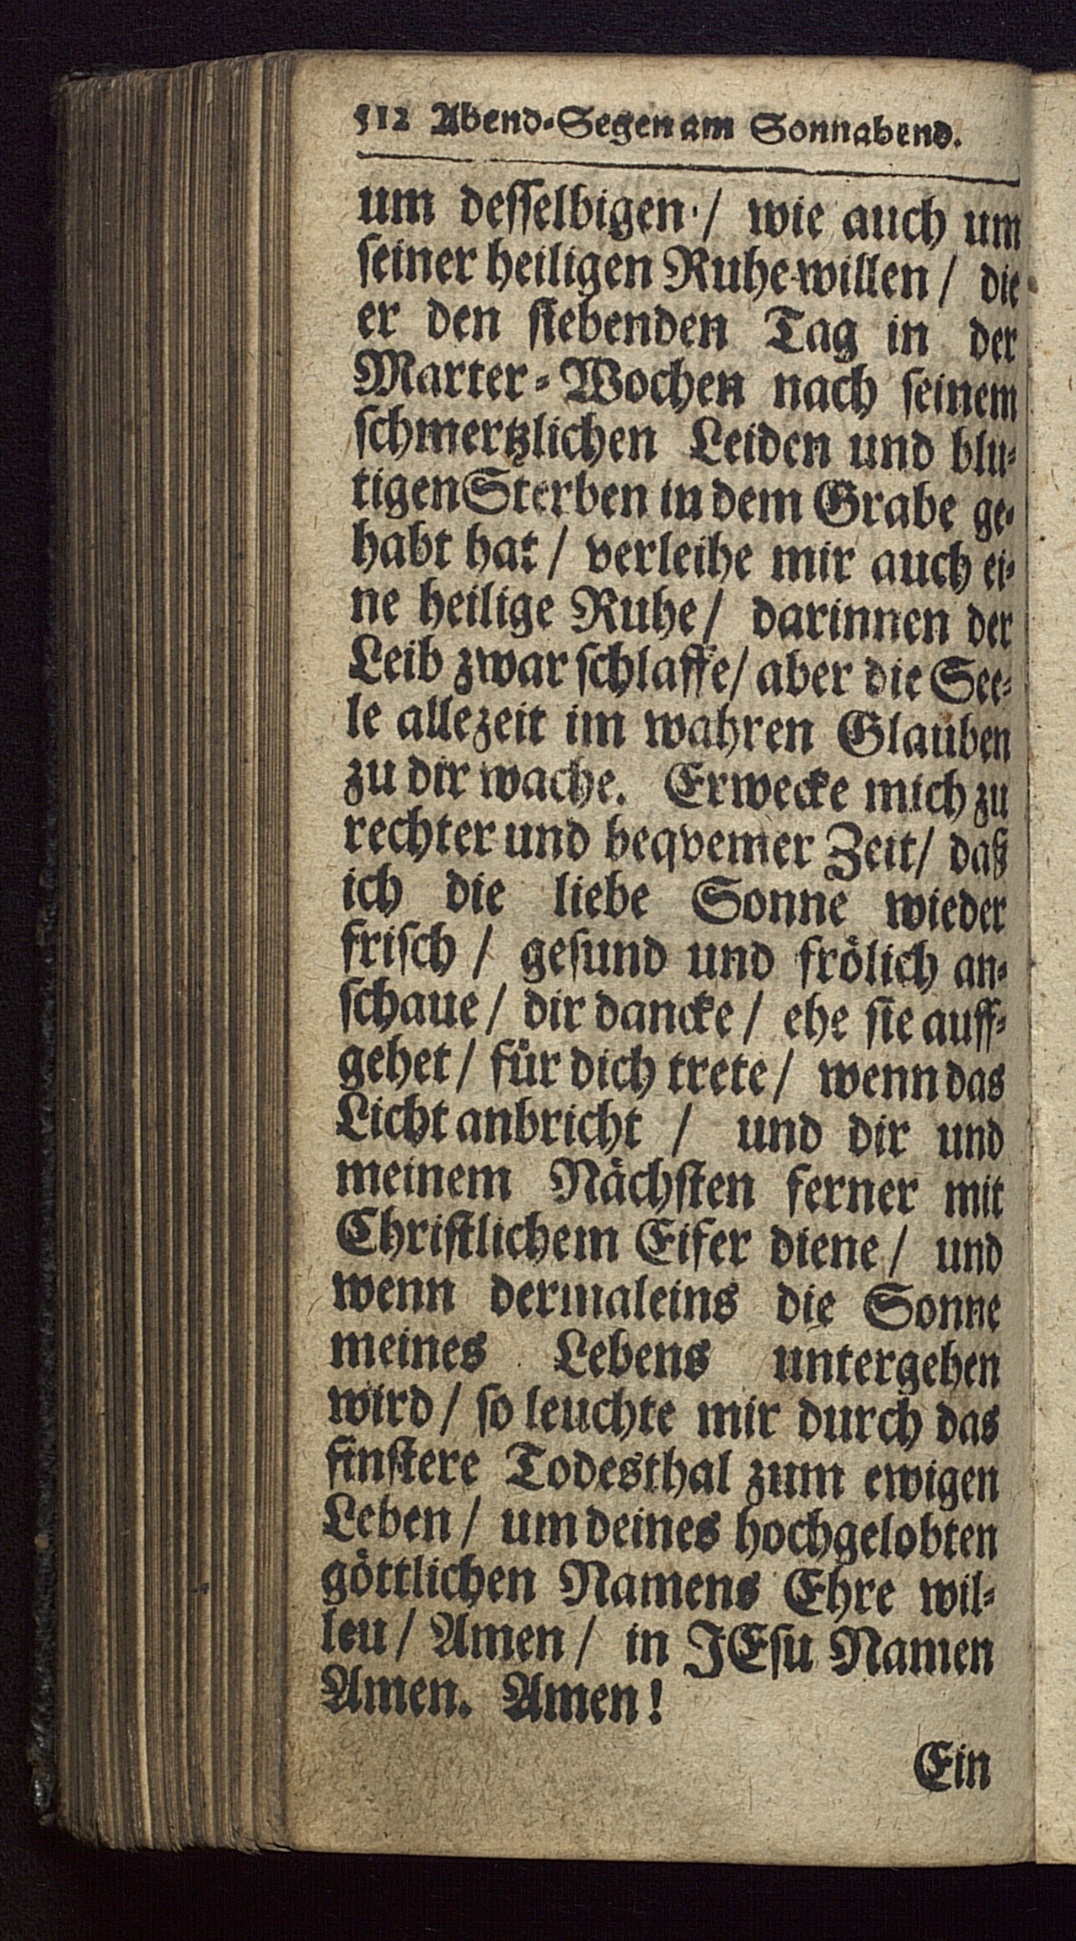 512 Abend-Segen am Sonnabend.
um desselbigen / wie auch um
seiner heiligen Ruhe willen / die
er den siebenden Tag in der
Marter-Wochen nach seinem
schmertzlichen Leiden und blu-
tigen Sterben in dem Grabe ge-
habt hat / verleihe mir auch ei-
ne heilige Ruhe / darinnen der
Leib zwar schlaffe / aber die See-
le allezeit im wahren Glauben
zu dir wache. Erwecke mich zu
rechter und beqvemer Zeit / daß
ich die liebe Sonne wieder
frisch / gesund und frölich an-
schaue / dir dancke / ehe sie auff-
gehet / für dich trete / wenn das
Licht anbricht / und dir und
meinem Nächsten ferner mit
Christlichem Eifer diene / und
wenn dermaleins die Sonne
meines Lebens untergehen
wird / so leuchte mir durch das
finstere Todesthal zum ewigen
Leben / um deines hochgelobten
göttlichen Namens Ehre wil-
leu / Amen / in JEsu Namen
Amen. Amen!
Ein